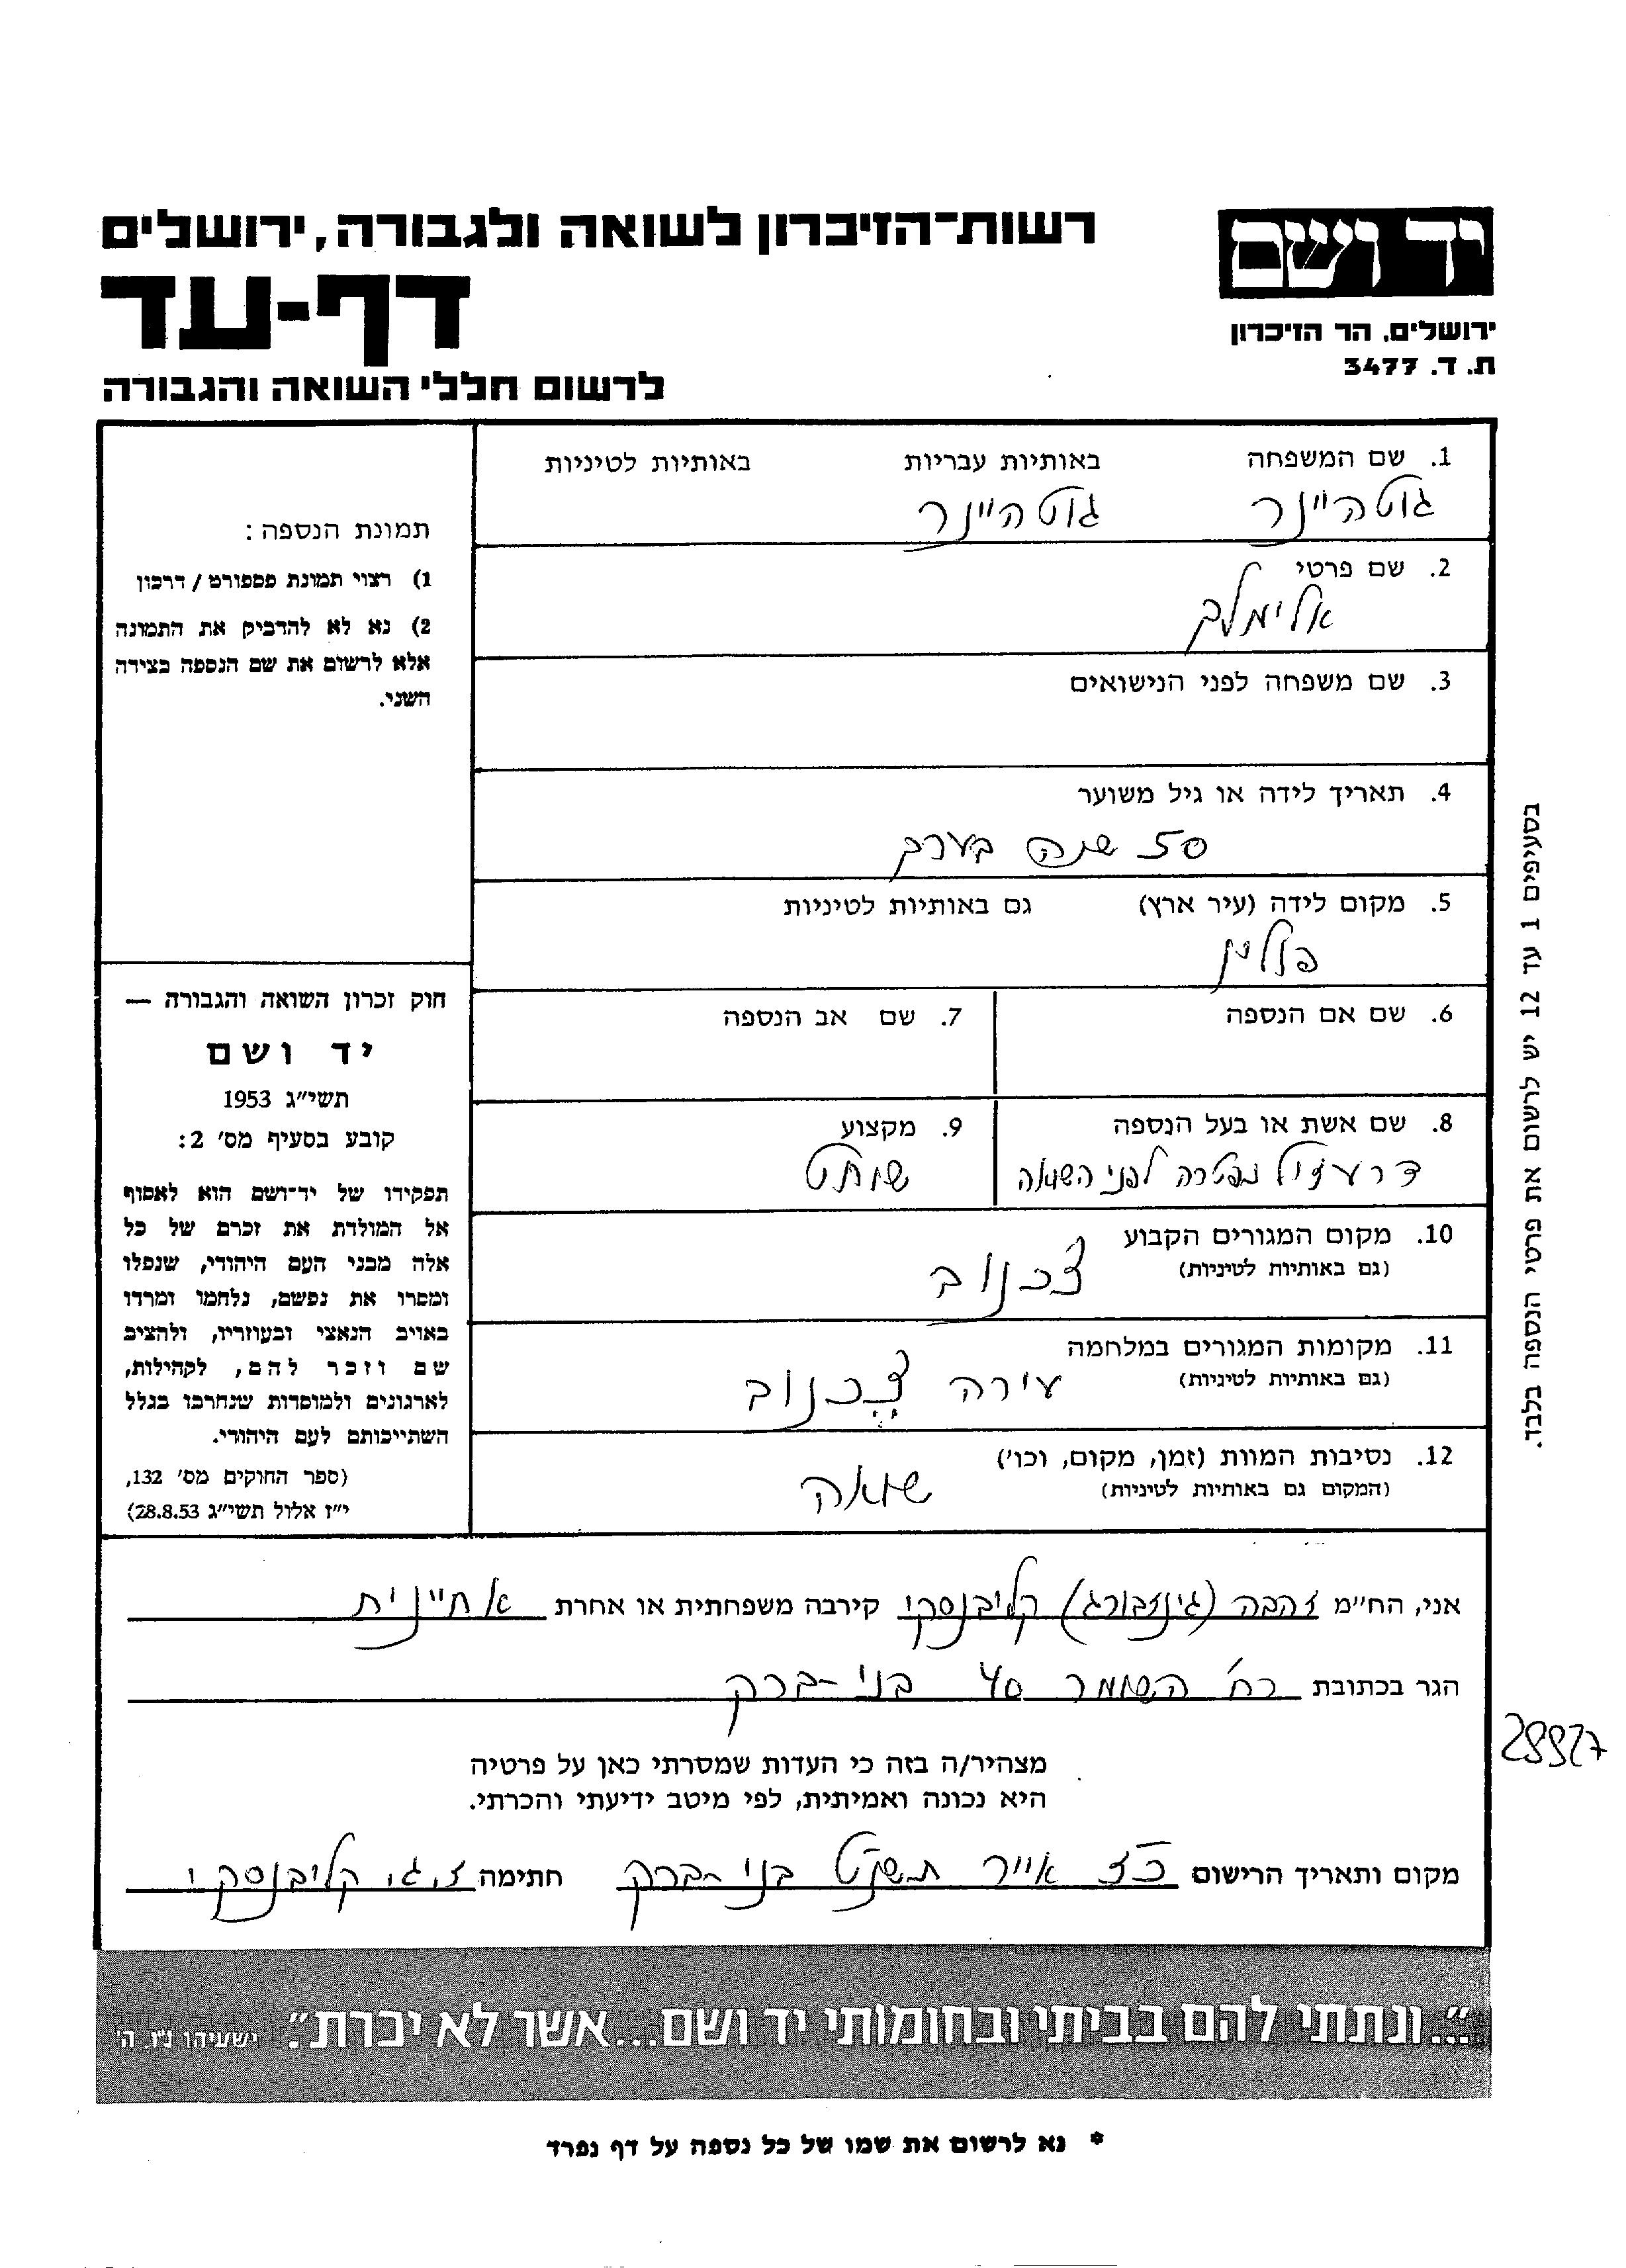 יד ושם
ירושלים, הר הזיכרון
ת. ד. 3477
רשות־הזיכרון לשואה ולגבורה, ירושלים
דף-עד
לרשום חללי השואה והגבורה
1. שם המשפחה באותיות עבריות באותיות לטיניות
גוטהיינר גוטהיינר
2. שם פרטי
אלימלך
3. שם משפחה לפני הנישואים
4. תאריך לידה או גיל משוער
50 שנה בערך
5. מקום לידה (עיר ארץ) גם באותיות לטיניות
פולין
6. שם אם הנספה 7. שם אב הנספה
8. שם אשת או בעל הנספה 9. מקצוע
נפטרה לפני השואה שוחט
10. מקום המגורים הקבוע
(גם באותיות לטיניות)
צ'כנוב
11. מקומות המגורים במלחמה
(גם באותיות לטיניות)
עירה צ'כנוב
12. נסיבות המוות (זמן, מקום, וכו')
(המקום גם באותיות לטיניות)
שואה
תמונת הנספה:
1) רצוי תמונת פספורט / דרכון
2) נא לא להדביק את התמונה
אלא לרשום את שם הנספה בצידה
השני.
חוק זכרון השואה והגבורה —
יד ושם
תשי"ג 1953
קובע בסעיף מס' 2:
תפקידו של יד־ושם הוא לאסוף
אל המולדת את זכרם של כל
אלה מבני העם היהודי, שנפלו
ומסרו את נפשם, נלחמו ומרדו
באויב הנאצי ובעוזריו, ולהציב
שם וזכר להם, לקהילות,
לארגונים ולמוסדות שנחרבו בגלל
השתייכותם לעם היהודי.
(ספר החוקים מס' 132,
י"ז אלול תשי"ג 28.8.53)
בסעיפים 1 עד 12 יש לרשום את פרטי הנספה בלבד.
אני, הח"מ זהבה (גינזבורג) קליבנסקי קירבה משפחתית או אחרת אחיינית
הגר בכתובת רח' השומר 40 בני-ברק
מצהיר/ה בזה כי העדות שמסרתי כאן על פרטיה
היא נכונה ואמיתית, לפי מיטב ידיעתי והכרתי.
מקום ותאריך הרישום אייר תשנ"ט בני-ברק חתימה ז. ג. קליבנסקי
"...ונתתי להם בביתי ובחומותי יד ושם...אשר לא יכרת". ישעיהו נ"ו, ה'
* נא לרשום את שמו של כל נספה על דף נפרד